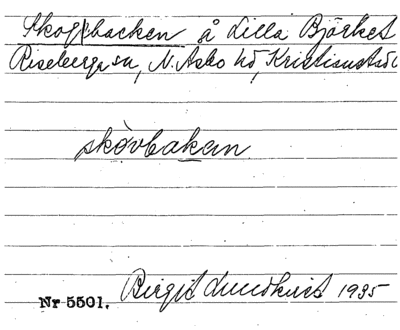 Skog|backen å Lilla Björket
Riseberga sn, N. Åsbo hd, Kristianstads
skòvbakan
Birgit Lundkvist 1935
Nr 5501.